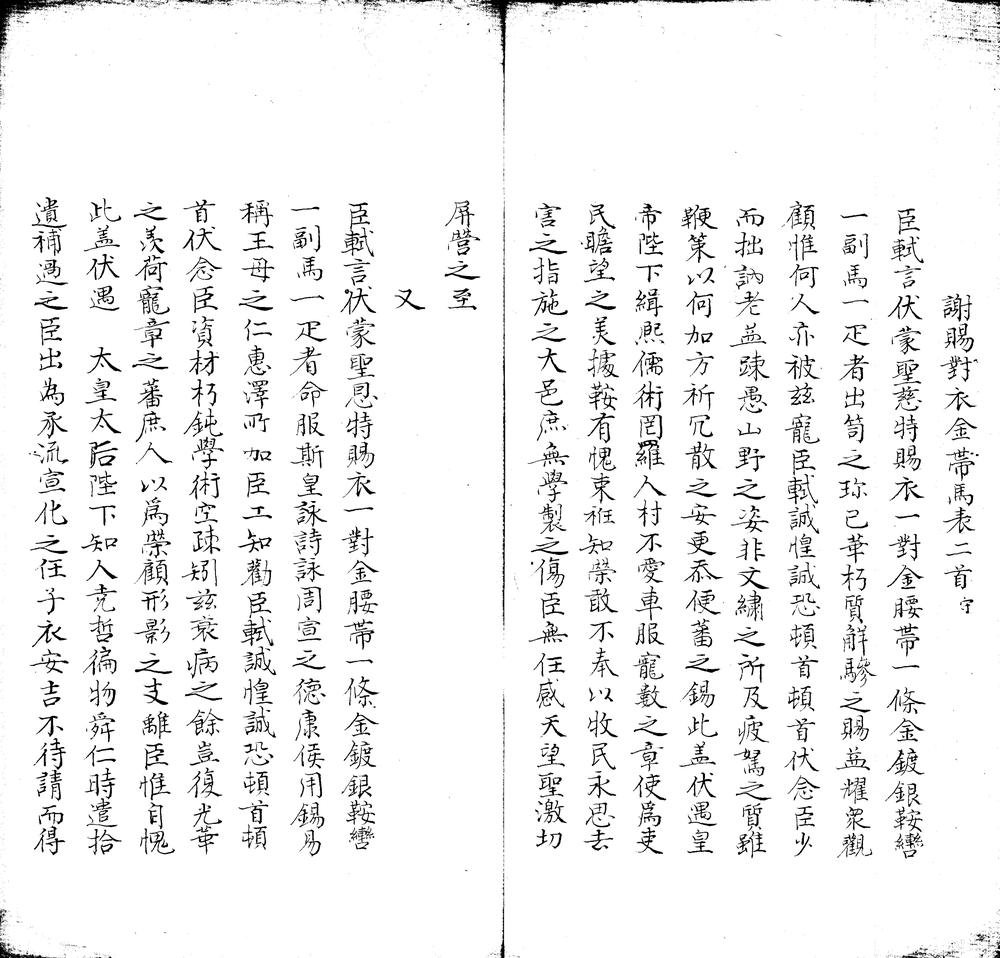 謝賜對衣金帶馬表二首守
臣軾言伏蒙聖慈特賜衣一對金腰帶一條金鍍銀鞍轡
一副馬一疋者出笥之珎已華朽質觧驂之賜益耀衆觀
顧惟何人亦被兹寵臣軾誠惶誠恐頓首頓首伏念臣少
而拙訥老益踈愚山野之姿非文繡之所及疲駑之質雖
鞭策以何加方祈冗散之安更忝便蕃之錫此盖伏遇皇
帝陛下緝熙儒術罔羅人材不愛車服寵數之章使爲吏
民瞻望之美據鞍有愧束袵知榮敢不奉以牧民永思去
害之指施之大邑庶無學製之傷臣無任感天望聖激切
屏營之至
又
臣軾言伏蒙聖恩特賜衣一對金腰帶一條金鍍銀鞍轡
一副馬一疋者命服斯皇詠詩詠周宣之德康侯用錫易
稱王母之仁惠澤所加臣工知勸臣軾誠惶誠恐頓首頓
首伏念臣資材朽鈍學術空踈矧兹衰病之餘豈復光華
之羡荷寵章之蕃庶人以爲榮顧形影之支離臣惟自愧
此盖伏遇　太皇太后陛下知人克哲徧物舜仁時遣拾
遺補過之臣出為承流宣化之任子衣安吉不待請而得